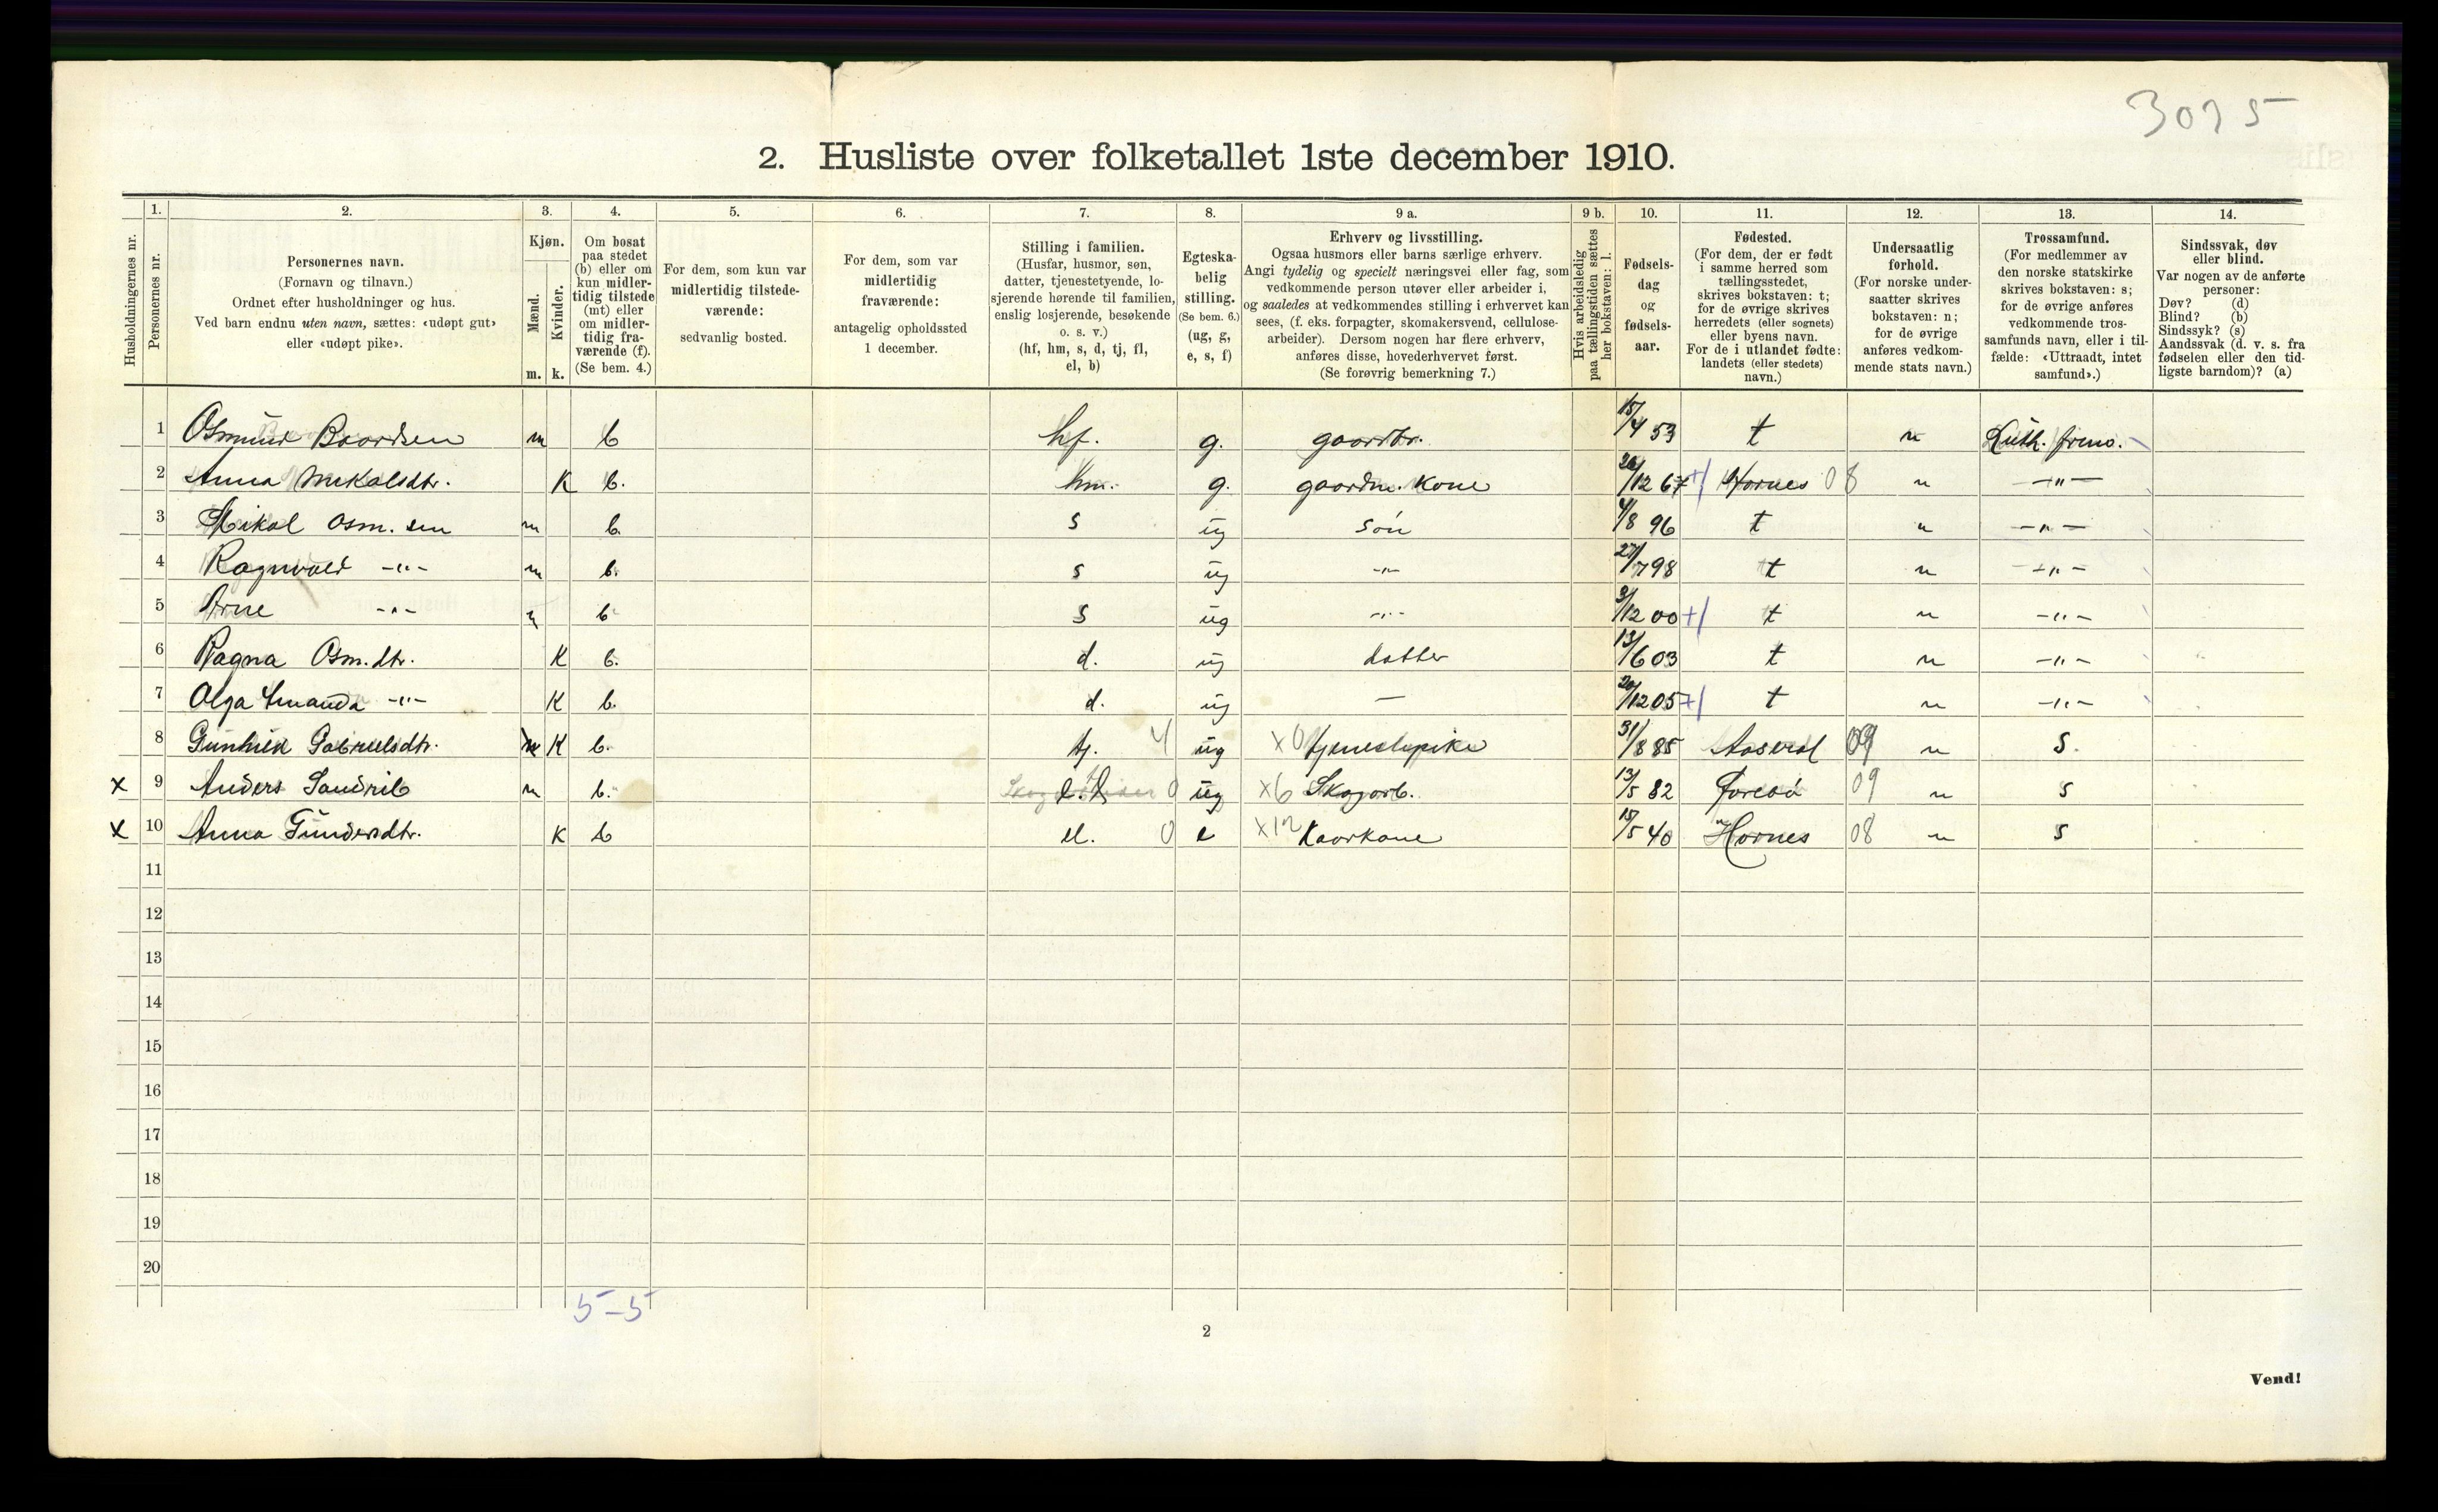 3075
2. Husliste over folketallet 1ste december 1910.
Husholdningernes nr.
1. Personernes nr.
2. Personernes navn. (Fornavn og tilnavn.) Ordnet efter husholdninger og hus. Ved barn endnu uten navn, sættes: «udøpt gut» eller «udøpt pike».
3. Kjøn. Mænd. m. Kvinder. k.
4. Om bosat paa stedet (b) eller om kun midlertidig tilstede (mt) eller om midlertidig fraværende (f). (Se bem. 4.)
5. For dem, som kun var midlertidig tilstedeværende: sedvanlig bosted.
6. For dem, som var midlertidig fraværende: antagelig opholdssted 1 december.
7. Stilling i familien. (Husfar, husmor, søn, datter, tjenestetyende, losjerende hørende til familien, enslig losjerende, besøkende o. s. v.) (hf, hm, s, d, tj, fl, el, b)
8. Egteskabelig stilling. (Se bem. 6.) (ug, g, e, s, f)
9 a. Erhverv og livsstilling. Ogsaa husmors eller barns særlige erhverv. Angi tydelig og specielt næringsvei eller fag, som vedkommende person utøver eller arbeider i, og saaledes at vedkommendes stilling i erhvervet kan sees, (f. eks. forpagter, skomakersvend, cellulosearbeider). Dersom nogen har flere erhverv, anføres disse, hovederhvervet først. (Se forøvrig bemerkning 7.)
9 b. Hvis arbeidsledig paa tællingstiden sættes her bokstaven: l.
10. Fødselsdag og fødselsaar.
11. Fødested. (For dem, der er født i samme herred som tællingsstedet, skrives bokstaven: t; for de øvrige skrives herredets (eller sognets) eller byens navn. For de i utlandet fødte: landets (eller stedets) navn.)
12. Undersaatlig forhold. (For norske undersaatter skrives bokstaven: n; for de øvrige anføres vedkommende stats navn.)
13. Trossamfund. (For medlemmer av den norske statskirke skrives bokstaven: s; for de øvrige anføres vedkommende trossamfunds navn, eller i tilfælde: «Uttraadt, intet samfund».)
14. Sindssvak, døv eller blind. Var nogen av de anførte personer: Døv? (d) Blind? (b) Sindssyk? (s) Aandssvak (d. v. s. fra fødselen eller den tidligste barndom)? (a)
1 Osmund Baardsen m b hf. g. gaardbr. 15/4 53 t n Luth. frmo.
2 Anna Mikalsdtr. K b. hm. g. gaardm. kone 26/12 67 +| Hornes 08 n -"-
3 Mikal Osm. sen m b. s ug søn 4/8 96 t n -"-
4 Ragnvald -"- m b. s ug -"- 27/7 98 t n -"-
5 Arne -"- m b. s ug -"- 3/12 00 +| t n -"-
6 Ragna Osm.dtr. K b. d. ug datter 13/6 03 t n -"-
7 Olga Amanda -"- K b. d. ug - 20/12 05 +| t n -"-
8 Gunhild Gabrielsdtr. m K b. tj. 4 ug x0 tjenestepike 31/8 85 Aaseral 09 n S.
x 9 Anders Sandrib m b. 0 ug x6 Skogarb. 13/5 82 09 n s
x 10 Anna Gundersdtr. K b el. 0 e x12 Kaarkone 15/5 40 Hornes 08 n s
11
12
13
14
15
16
17
18
19
20
5-5
2
Vend!